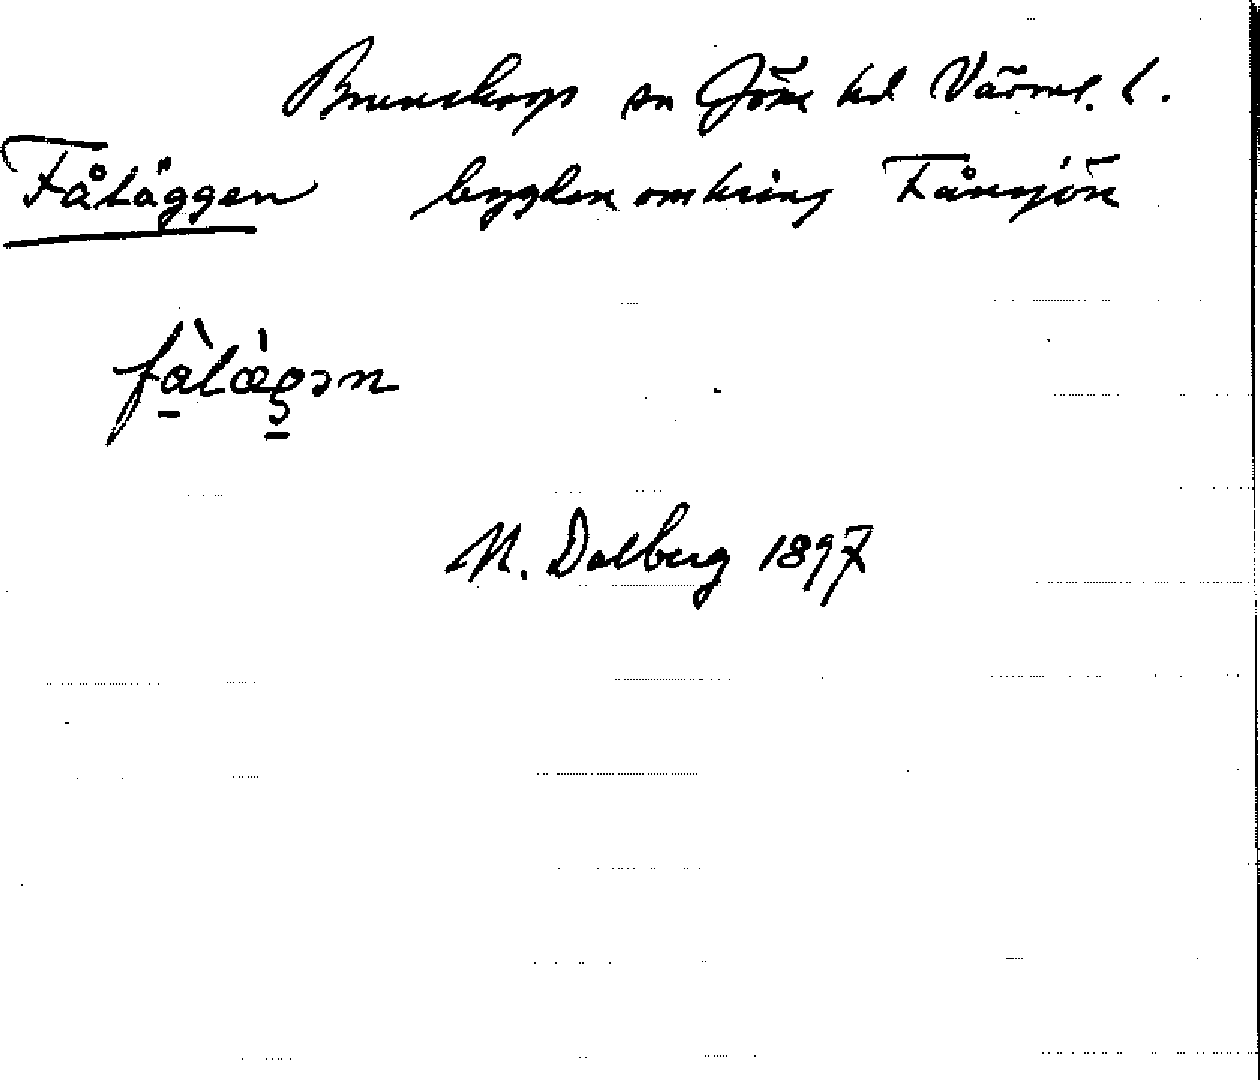 Brunskogs sn Jöse hd Värml. l.
Fåläggen bygden omkring Fånsjön
fàlæ̀gən
N. Dalberg 1897